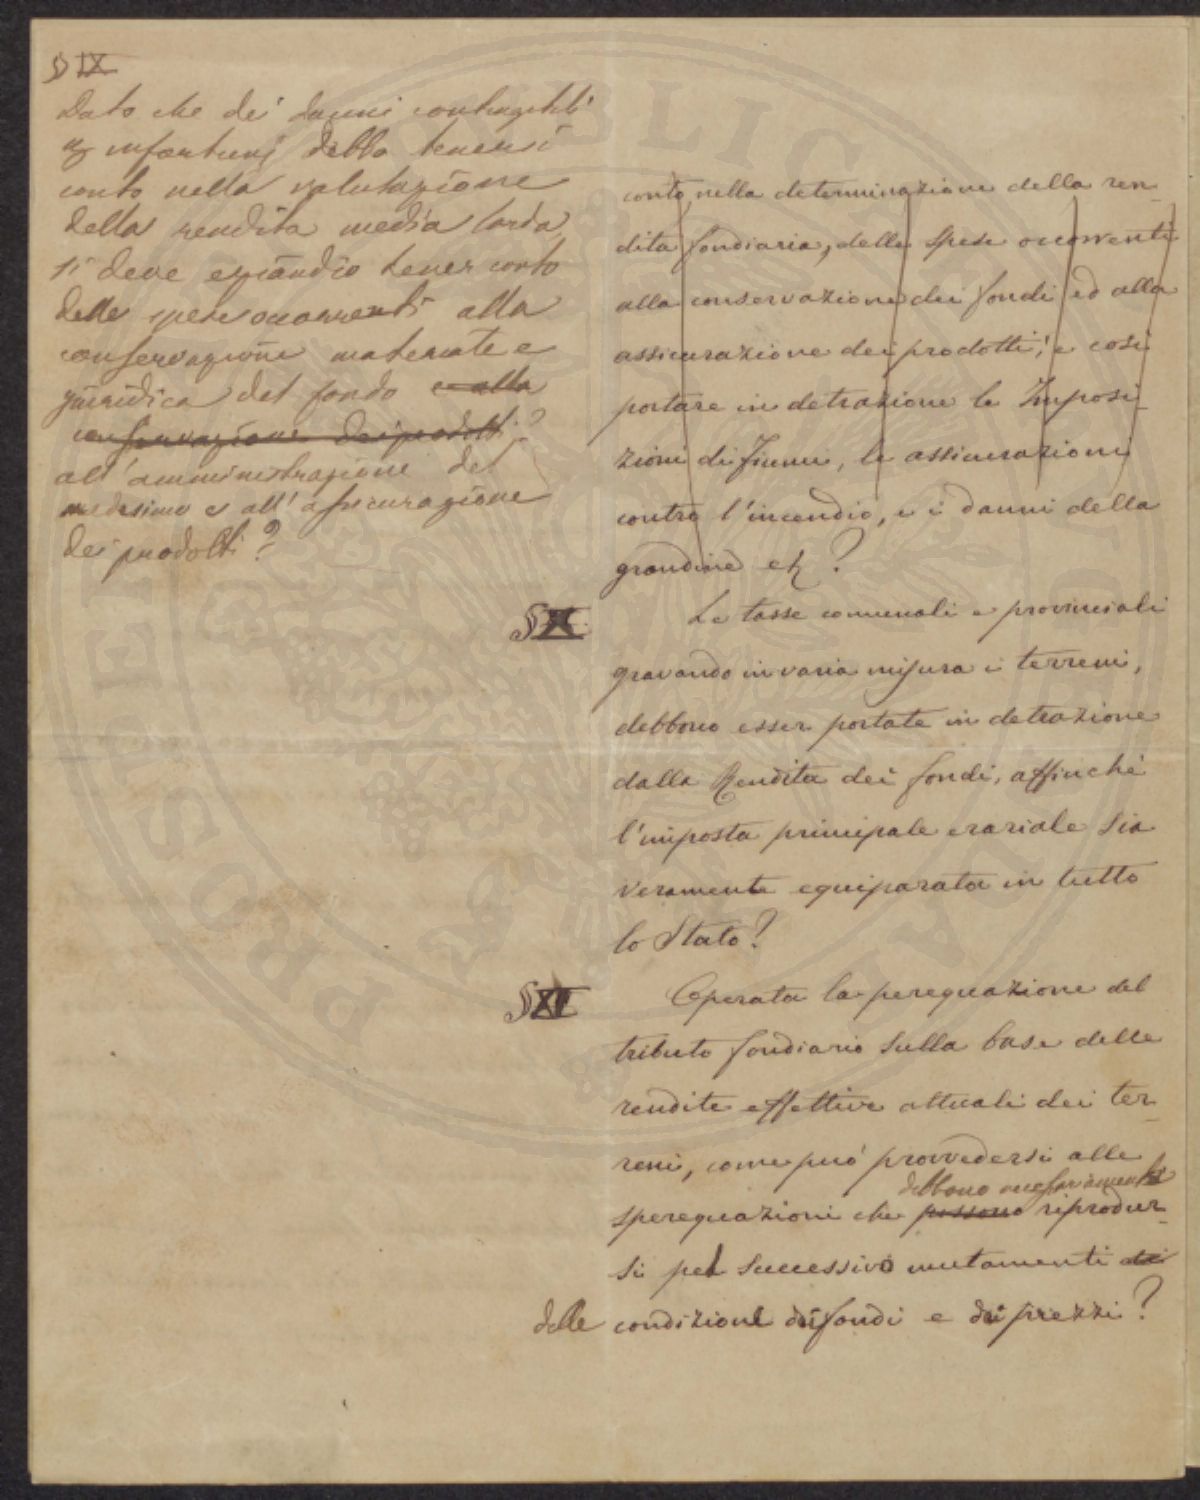 § IX
Dato che dei danni contingibili
ey infortunj debba tenersi
conto nella valutazione
della rendita media lorda,
si deve eziandio tener conto
delle spese occorrenti alla
conservazione materiale e
giuridica del fondo e alla
conservazione dei prodotti?
all'amministrazione del
medesimo e all'assicurazione
dei prodotti?
conto, nella determinazione della ren-
dita fondiaria, delle spese occorrenti
alla conservazione dei fondi ed alla
assicurazione dei prodotti; e così
portare in detrazione le Imposi-
zioni di Fiumi, le assicurazioni
contro l'incendio, e i danni della
grandine etc?
§ X
Le tasse comunali e provinciali
gravando in varia misura i terreni,
debbono esser portate in detrazione
dalla Rendita dei fondi, affinchè
l'imposta principale erariale sia
veramente equiparata in tutto
lo Stato?
§ XI
Operata la perequazione del
tributo fondiario sulla base delle
rendite effettive attuali dei ter-
reni, come può provvedersi alle
debbono necessariamente
sperequazioni che possono riprodur-
si pel successivo mutamenti dei
delle condizioni dei fondi e dei prezzi?